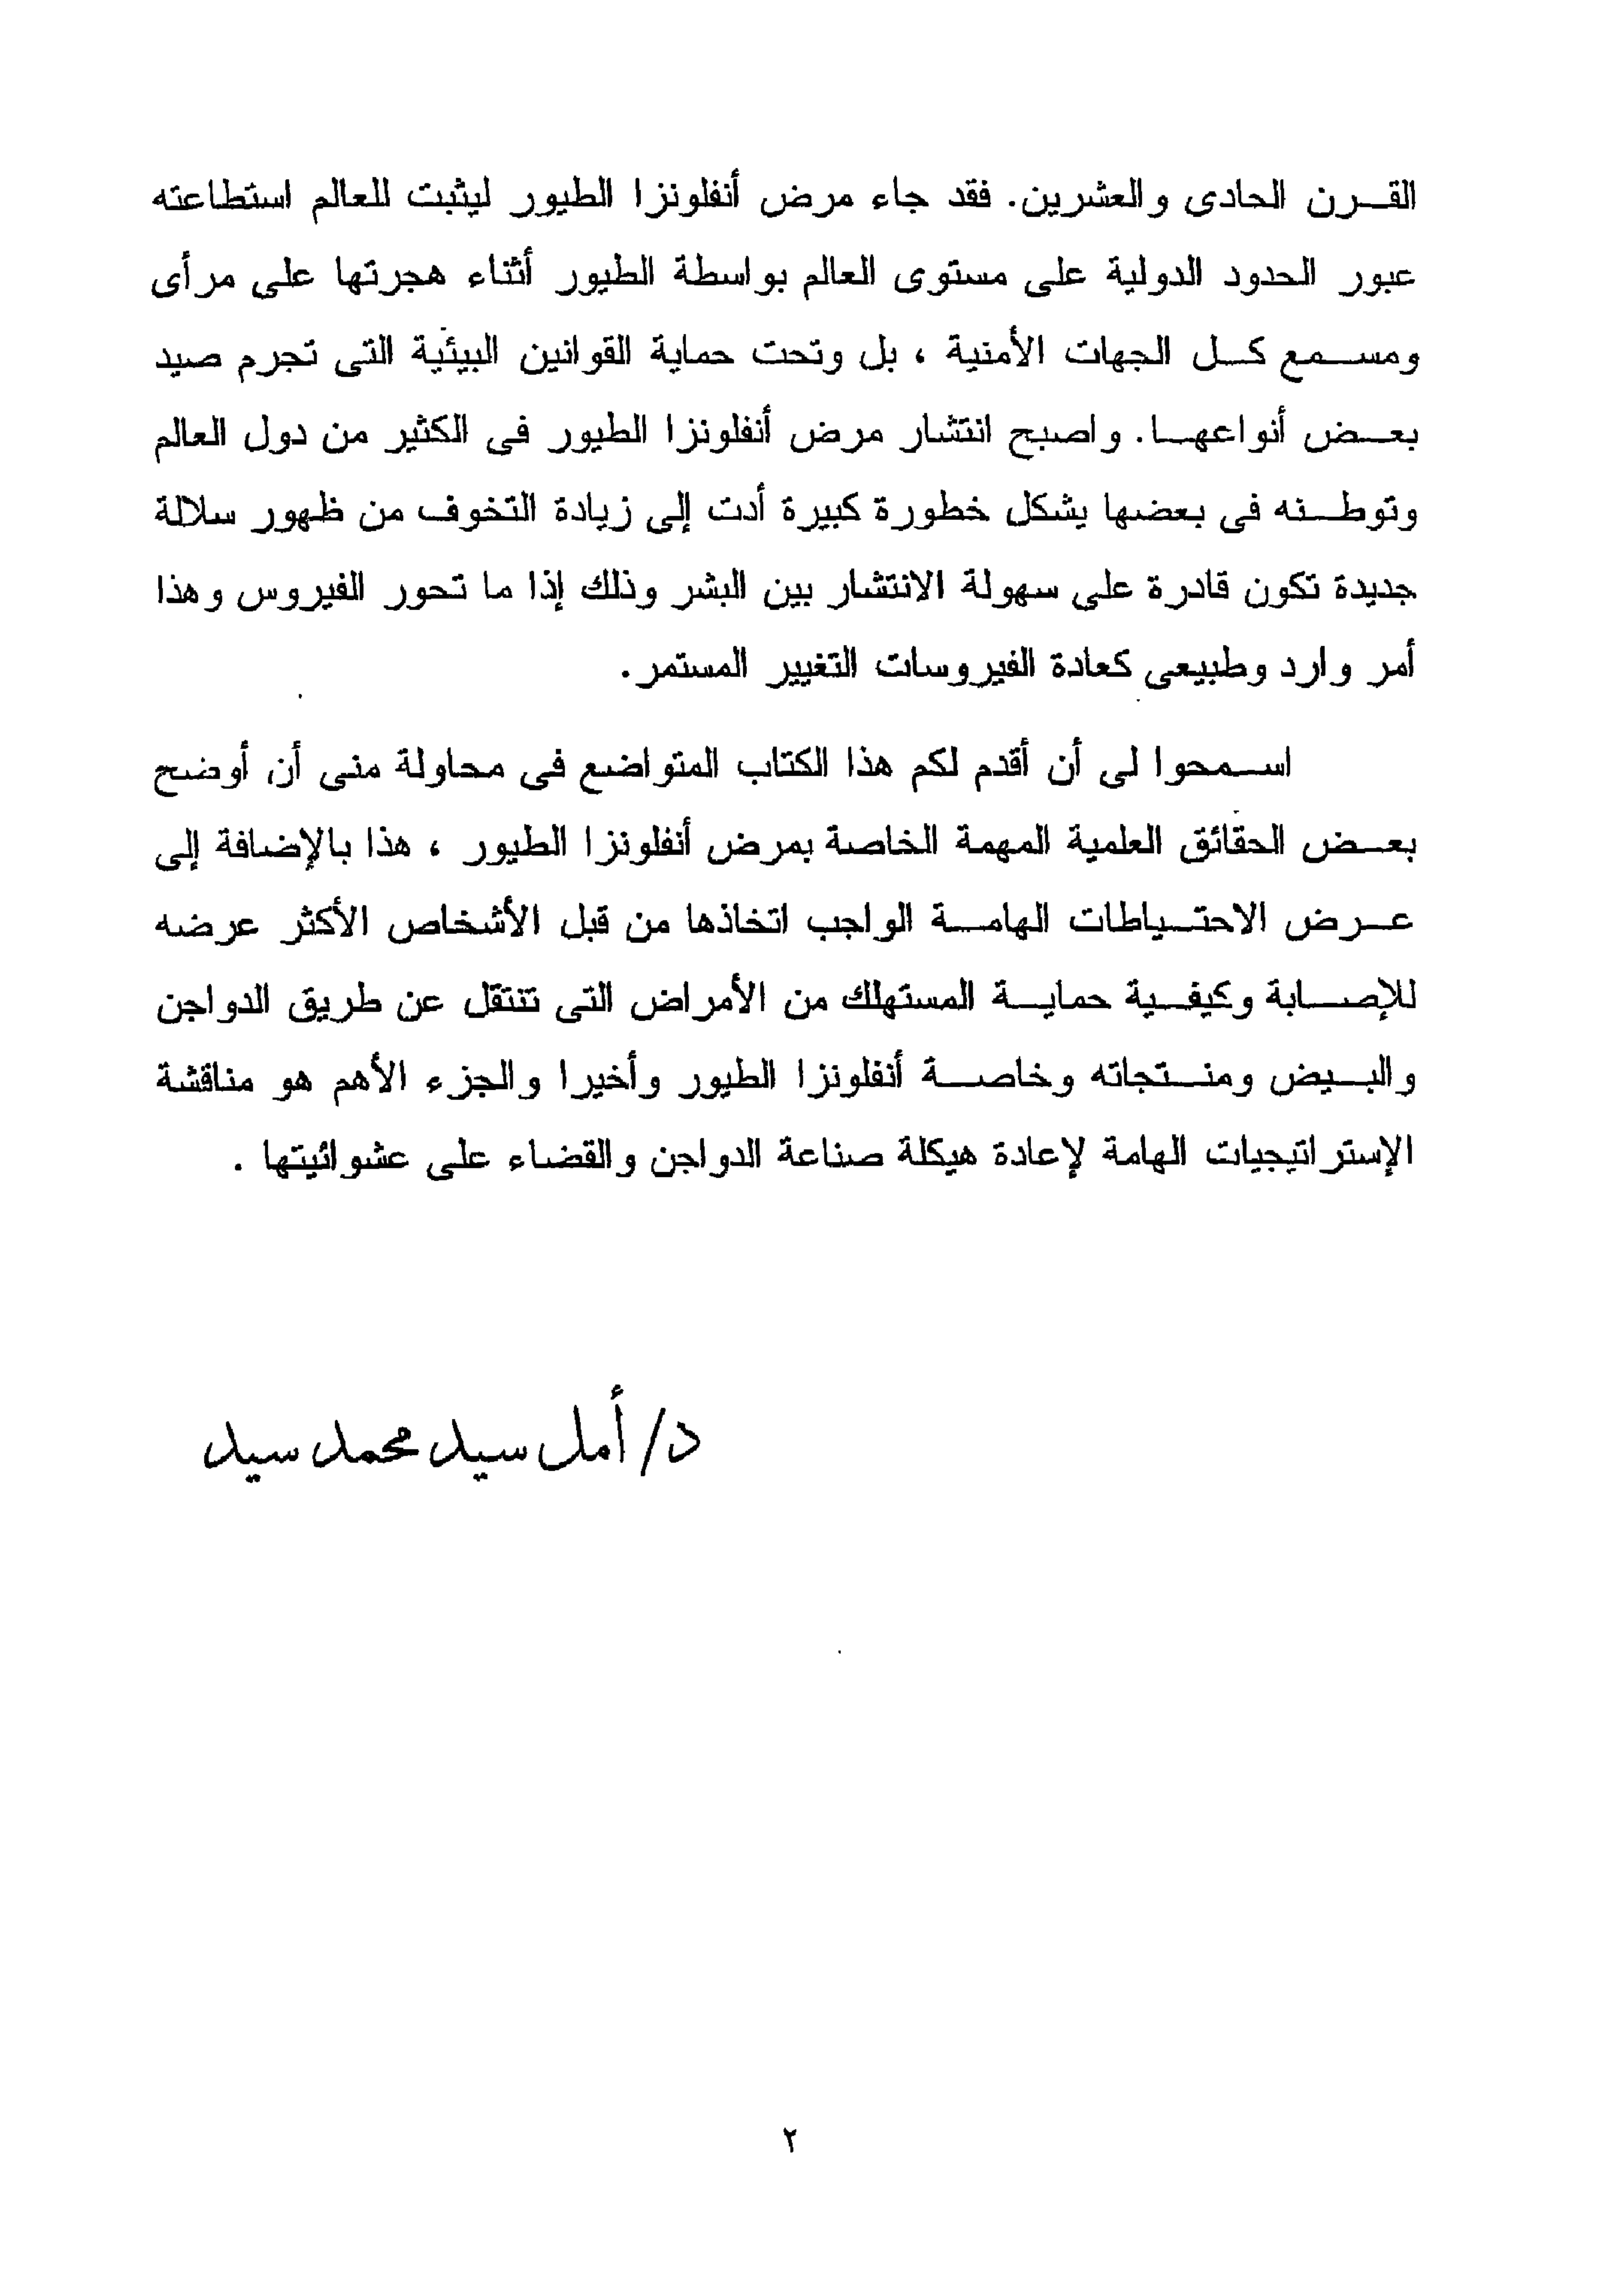 القرن الحادى والعشرين. فقد جاء مرض أنفلونزا الطيور ليثبت للعالم استطاعته
عبور الحدود الدولية على مستوى العالم بواسطة الطيور أثناء هجرتها على مرأى
ومسمع كل الجهات الأمنية ، بل وتحت حماية القوانين البيئية التى تجرم صيد
بعض أنواعها. واصبح انتشار مرض أنفلونزا الطيور فى الكثير من دول العالم
وتوطنه فى بعضها يشكل خطورة كبيرة أدت إلى زيادة التخوف من ظهور سلالة
جديدة تكون قادرة على سهولة الانتشار بين البشر وذلك إذا ما تحور الفيروس وهذا
أمر وارد وطبيعى كعادة الفيروسات التغيير المستمر.
اسمحوا لى أن أقدم لكم هذا الكتاب المتواضع فى محاولة منى أن أوضح
بعض الحقائق العلمية المهمة الخاصة بمرض أنفلونزا الطيور ، هذا بالإضافة إلى
عرض الاحتياطات الهامة الواجب اتخاذها من قبل الأشخاص الأكثر عرضه
للإصابة وكيفية حماية المستهلك من الأمراض التى تنتقل عن طريق الدواجن
والبيض ومنتجاته وخاصة أنفلونزا الطيور وأخيرا والجزء الأهم هو مناقشة
الإستراتيجيات الهامة لإعادة هيكلة صناعة الدواجن والقضاء على عشوائيتها .
د/أمل سيد محمد سيد
٢